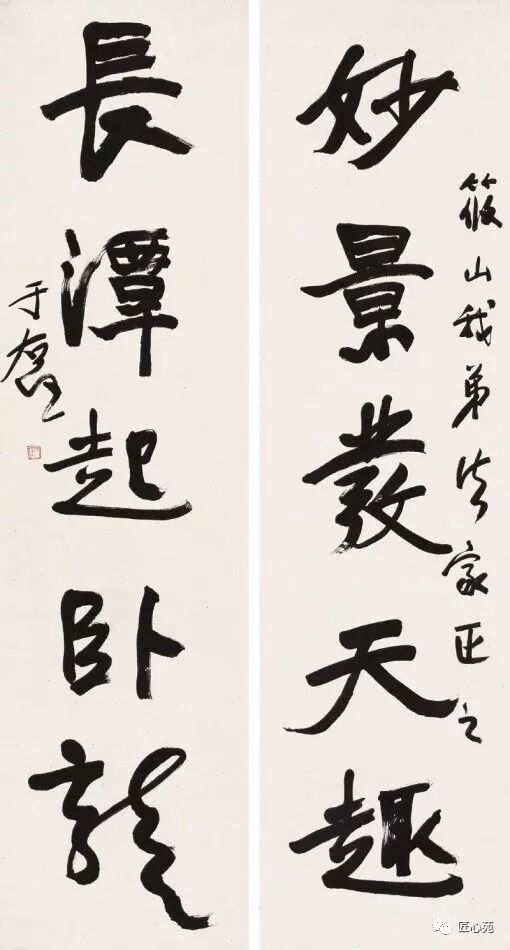 筱山我弟法家正之
妙景發天趣
長潭起卧龍
于右任
匠心苑